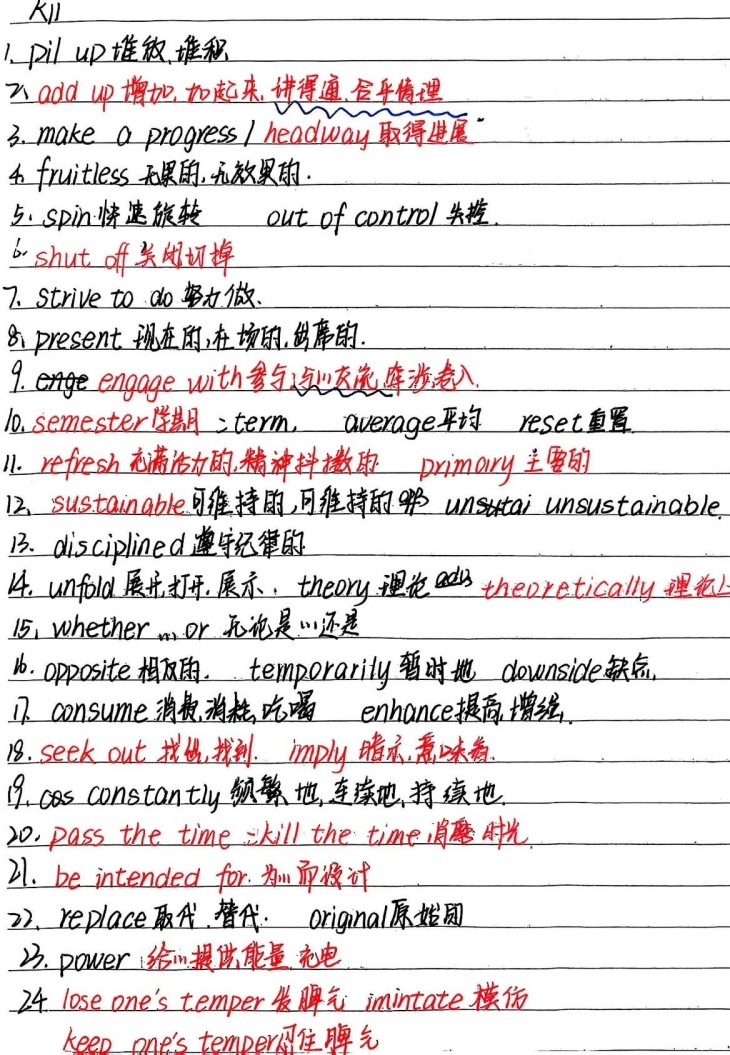 K11
1. pil up 堆放、堆积
2. add up 增加, 加起来, 讲得通, 合乎情理
3. make a progress / headway 取得进展
4. fruitless 无果的, 无效果的.
5. spin 快速旋转 out of control 失控.
6. shut off 关闭切掉
7. strive to do 努力做.
8. present 现在的, 在场的, 出席的.
9. enge engage with 参与, 与…交流 牵涉卷入.
10. semester 学期 = term. average 平均 reset 重置
11. refresh 充满活力的, 精神抖擞的 primary 主要的
12. sustainable 可维持的, 可维持的 unsutai unsustainable.
13. disciplined 遵守纪律的
14. unfold 展开, 打开, 展示. theory 理论 adv. theoretically 理论上
15. whether … or 无论是…还是
16. opposite 相反的. temporarily 暂时地 downside 缺点.
17. consume 消费, 消耗, 吃喝 enhance 提高, 增强.
18. seek out 找出, 找到. imply 暗示, 意味着.
19. cos constantly 频繁地, 连续地, 持续地.
20. pass the time = kill the time 消磨时光.
21. be intended for 为…而设计
22. replace 取代. 替代. original 原始的
23. power 给…提供能量 充电
24 lose one's temper 发脾气 imintate 模仿
keep one's temper 忍住脾气